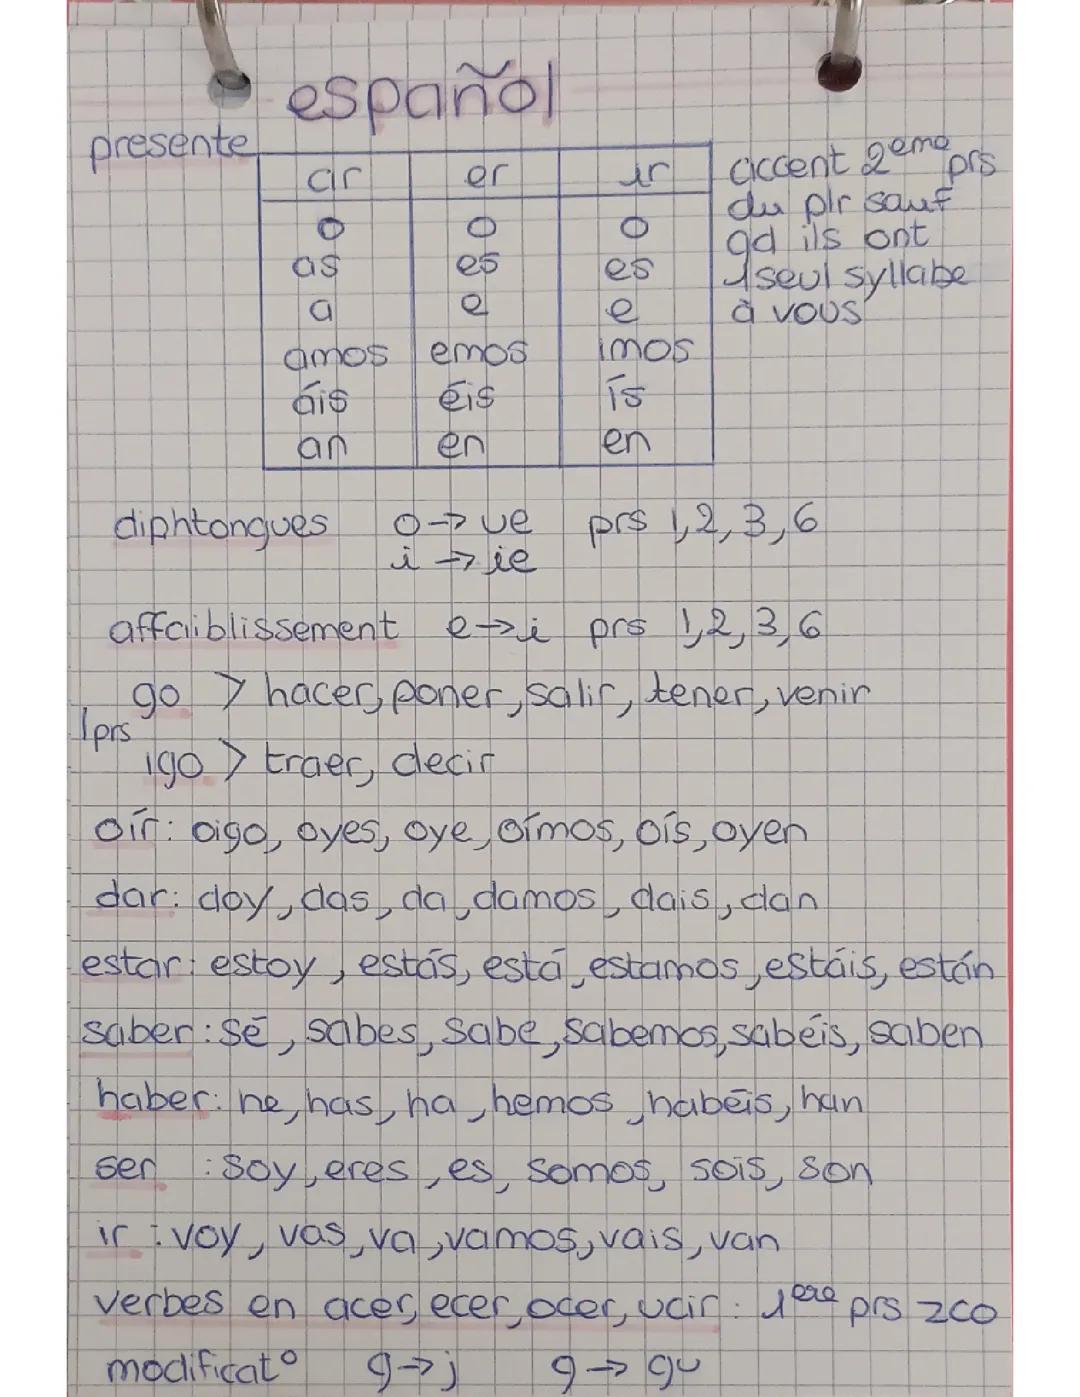 español
presente
ar er ir
o o o
as es es
a e e
amos emos imos
áis éis ís
an en en
accent 2eme prs
du plr sauf
qd ils ont
1 seul syllabe
à vous
diphtongues o → ue prs 1,2,3,6
i → ie
affaiblissement e → i prs 1,2,3,6
go > hacer, poner, salir, tener, venir
1prs
igo > traer, decir
oír: oigo, oyes, oye, oímos, oís, oyen
dar: doy, das, da, damos, dais, dan
estar: estoy, estás, está, estamos, estáis, están
saber: sé, sabes, sabe, sabemos, sabéis, saben
haber: he, has, ha, hemos, habéis, han
ser : soy, eres, es, somos, sois, son
ir : voy, vas, va, vamos, vais, van
verbes en acer, ecer, ocer, ucir : 1ere prs zco
modificat° g → j g → gu